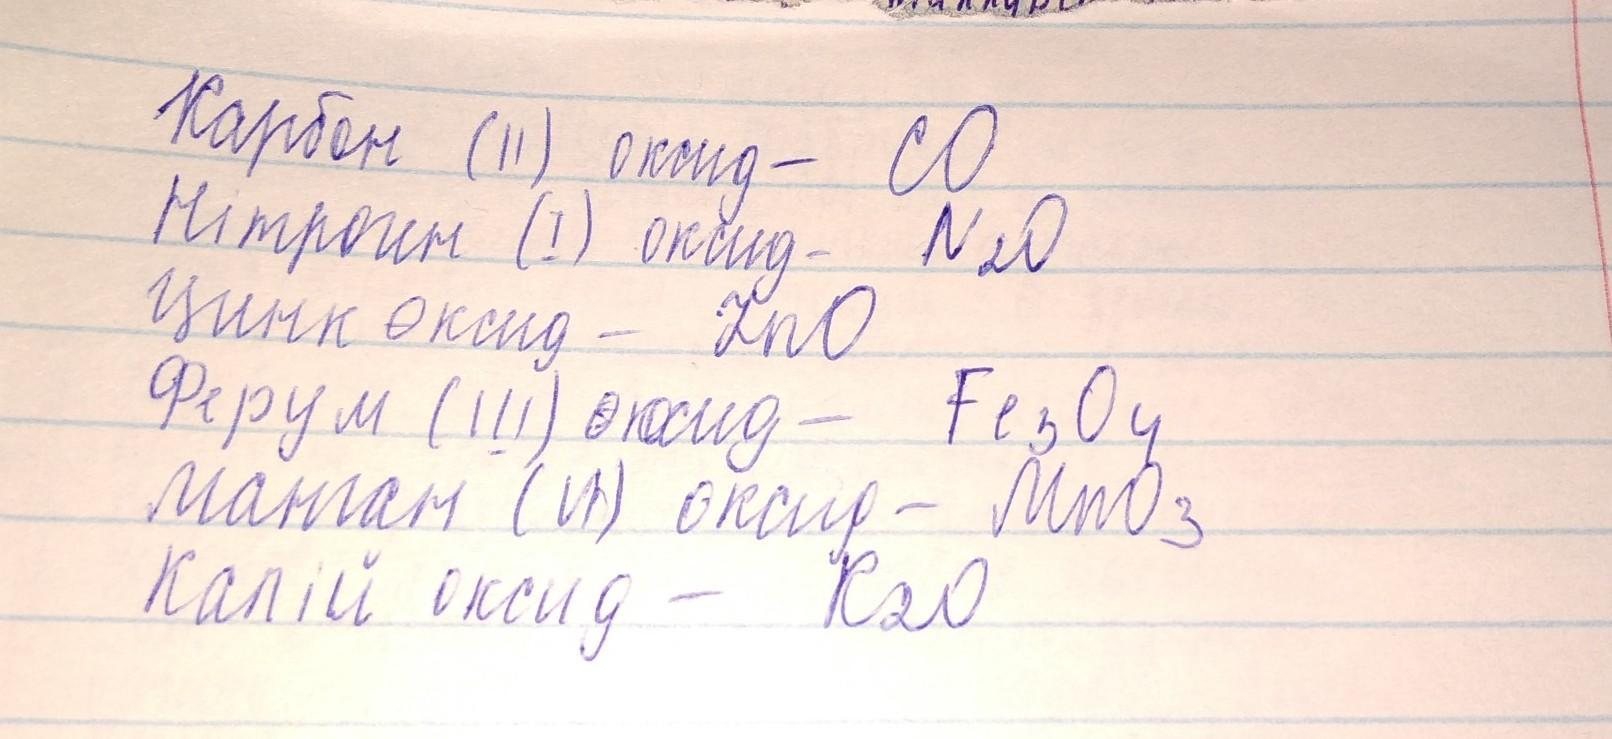 Карбон (II) оксид - CO
Нітроген (I) оксид - N2O
Цинк оксид - ZnO
Ферум (III) оксид - Fe3O4
Манган (VI) оксид - MnO3
Калій оксид - K2O